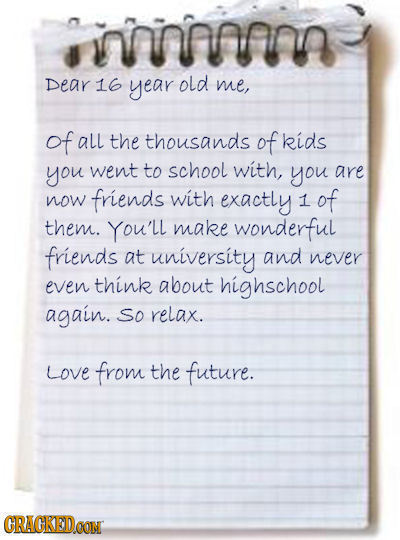 Dear 16 year old me,
Of all the thousands of kids
you went to school with, you are
now friends with exactly 1 of
them. You'll make wonderful
friends at university and never
even think about highschool
again. So relax.
Love from the future.
CRACKED.COM